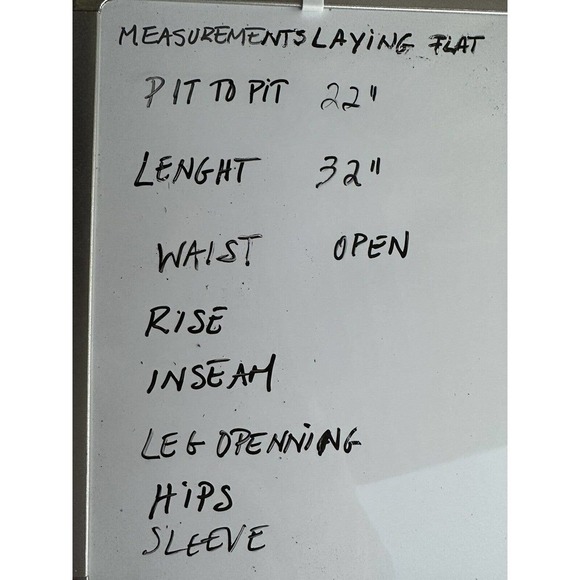 MEASUREMENTS LAYING FLAT
PIT TO PIT 22"
LENGHT 32"
WAIST OPEN
RISE
INSEAM
LEG OPENNING
HIPS
SLEEVE